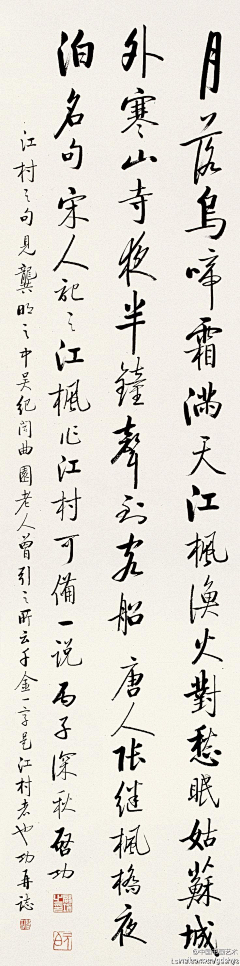 月落烏啼霜滿天江楓漁火對愁眠姑蘇城
外寒山寺夜半鐘聲到客船唐人張繼楓橋夜
泊名句宋人記之江楓作江村可備一説丙子深秋啓功
江村之句見龔明之中吳紀聞曲園老人曾引之所云千金一字是江村者也功再誌